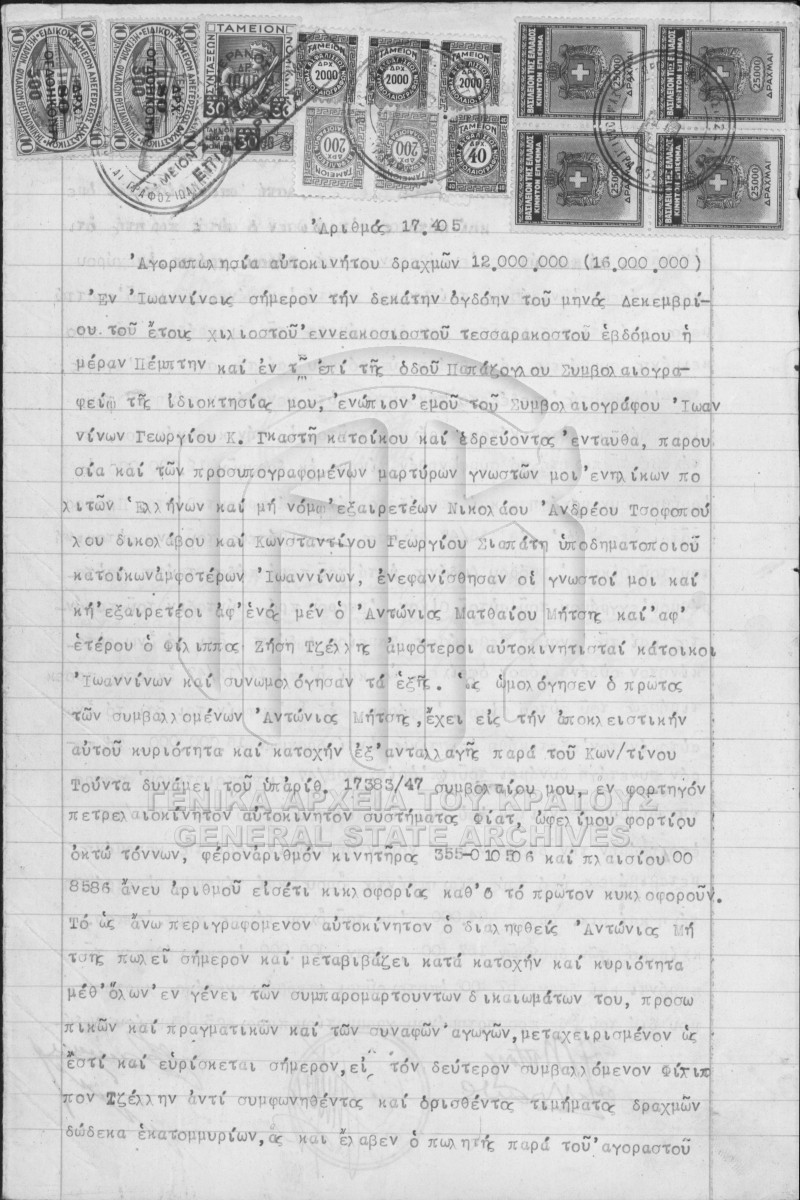 Ἀριθμός 17.405
Ἀγοραπωλησία αὐτοκινήτου δραχμῶν 12.000.000 (16.000.000)
Ἐν Ἰωαννίνοις σήμερον τήν δεκάτην ὀγδόην τοῦ μηνός Δεκεμβρί-
ου τοῦ ἔτους χιλιοστοῦ ἐννεακοσιοστοῦ τεσσαρακοστοῦ ἑβδόμου ἡ
μέραν Πέμπτην καί ἐν τῷ ἐπί τῆς ὁδοῦ Παπάζογλου Συμβολαιογρα-
φείῳ τῆς ἰδιοκτησίας μου, ἐνώπιον ἐμοῦ τοῦ Συμβολαιογράφου Ἰωαν
νίνων Γεωργίου Κ. Γκαστῆ κατοίκου καί ἑδρεύοντος ἐνταυθα, παρου
σία καί τῶν προσυπογραφομένων μαρτύρων γνωστῶν μοι ἐνηλίκων πο
λιτῶν Ἑλλήνων καί μή νόμῳ ἐξαιρετέων Νικολάου Ἀνδρέου Τσοφοπού
λου δικολάβου καί Κωνσταντίνου Γεωργίου Σιαπάτη ὑποδηματοποιοῦ
κατοίκωνἀμφοτέρων Ἰωαννίνων, ἐνεφανίσθησαν οἱ γνωστοί μοι καί
κή ἐξαιρετέοι ἀφ' ἑνός μέν ὁ Ἀντώνιος Ματθαίου Μήτσης καί ἀφ'
ἑτέρου ὁ Φίλιππος Ζήση Τζέλλης ἀμφότεροι αὐτοκινητισταί κάτοικοι
Ἰωαννίνων καί συνωμολόγησαν τά ἑξῆς. Ὡς ὡμολόγησεν ὁ πρωτος
τῶν συμβαλλομένων Ἀντώνιος Μήτσης, ἔχει εἰς τήν ἀποκλειστικήν
αὐτοῦ κυριότητα καί κατοχήν ἐξ' ἀνταλλαγῆς παρά τοῦ Κων/τίνου
Τούντα δυνάμει τοῦ ὑπ'ἀριθ. 17383/47 συμβολαίου μου, εν φορτηγόν
πετρελαιοκίνητον αὐτοκίνητον συστήματος Φίατ, ὠφελίμου φορτίου
ὀκτώ τόννων, φέρονἀριθμόν κινητῆρος 355-010506 καί πλαισίου 00
8586 ἄνευ ἀριθμοῦ εἰσέτι κικλοφορίας καθ'ὅ τό πρῶτον κυκλοφοροῦν.
Τό ὡς ἄνω περιγραφόμενον αὐτοκίνητον ὁ διαληφθείς Ἀντώνιος Μή
τσης πωλεῖ σήμερον καί μεταβιβάζει κατά κατοχήν καί κυριότητα
μέθ' ὅλων ἐν γένει τῶν συμπαρομαρτουντων δικαιωμάτων του, προσω
πικῶν καί πραγματικῶν καί τῶν συναφῶν ἀγωγῶν, μεταχειρισμένον ὡς
ἔστί καί εὑρίσκεται σήμερον, εἰς τόν δεύτερον συμβαλλόμενον Φίλιπ
πον Τζέλλην ἀντί συμφωνηθέντος καί ὁρισθέντος τιμήματος δραχμῶν
δώδεκα ἑκατομμυρίων, ἅς καί ἔλαβεν ὁ πωλητής παρά τοῦ ἀγοραστοῦ
ΓΕΝΙΚΑ ΑΡΧΕΙΑ ΤΟΥ ΚΡΑΤΟΥΣ
GENERAL STATE ARCHIVES